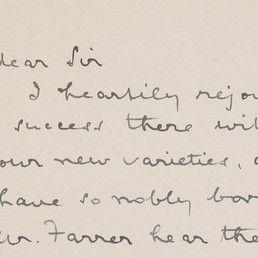 dear Sir
I heartily rejo
success there wil
our new varieties, a
have so nobly bor
Mr. Farrer hear the